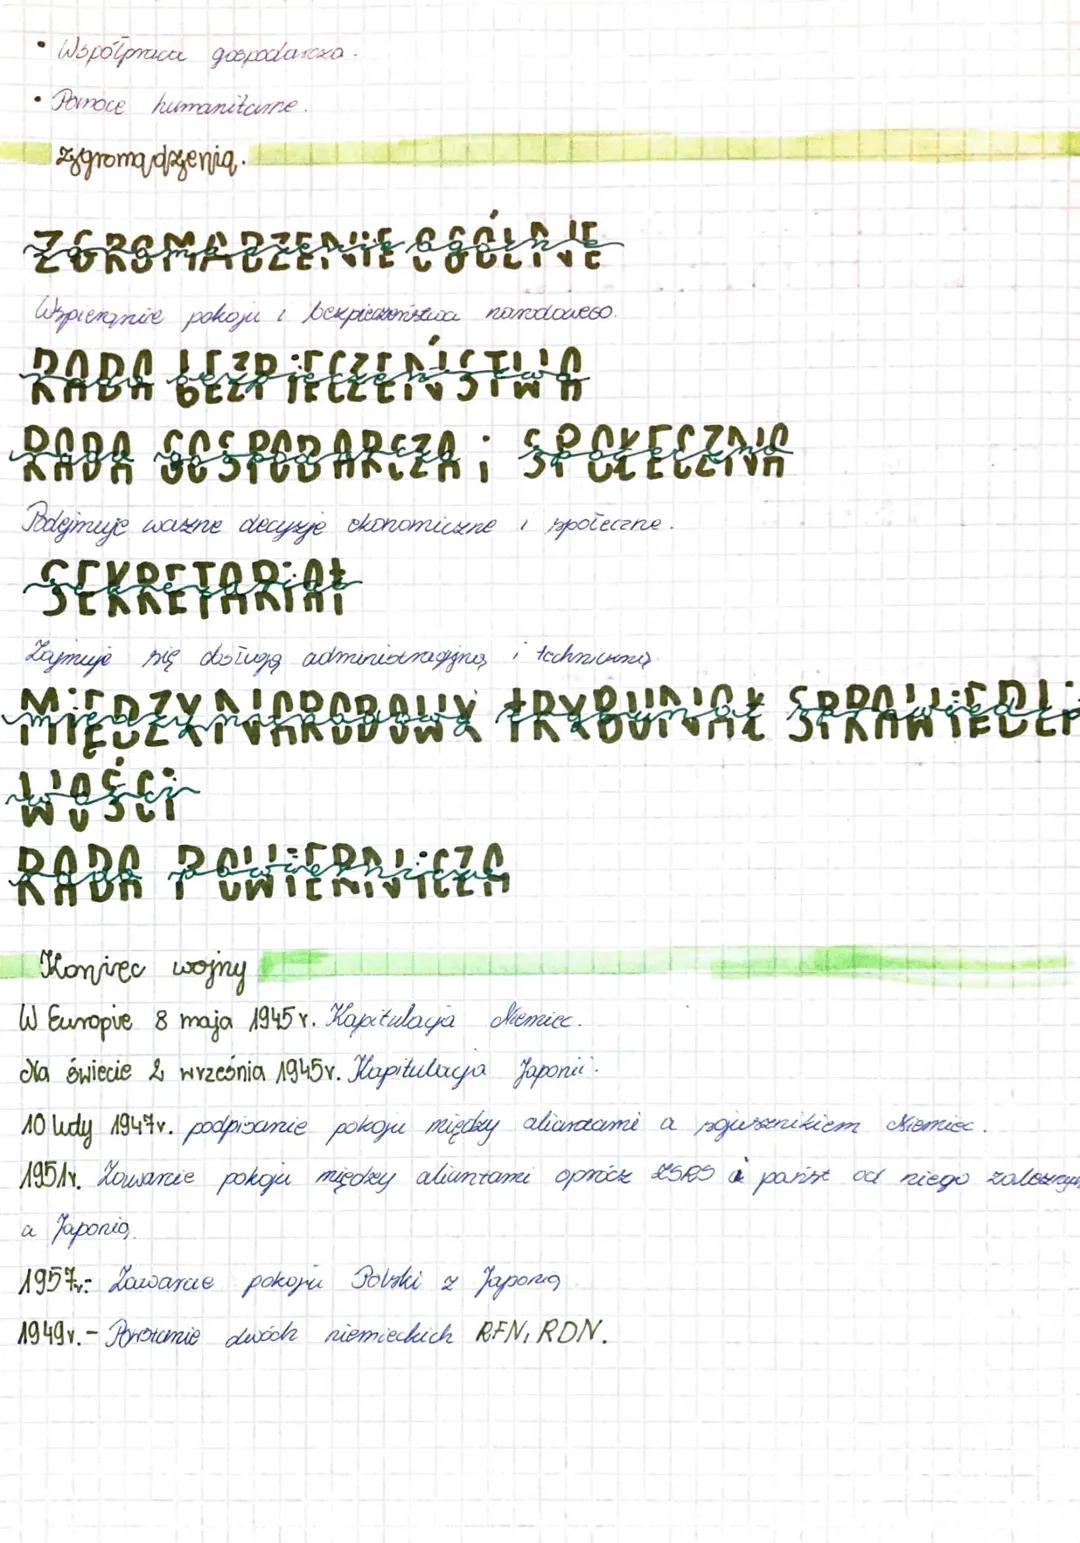 • Współpraca gospodarcza.
• Pomoce humanitarne.
zgromadzenia.
ZGROMADZENIE OGÓLNE
Wspieranie pokoju i bezpieczeństwa narodowego.
RADA BEZPIECZEŃSTWA
RADA GOSPODARCZA i SPOŁECZNA
Podejmuje ważne decyzje ekonomiczne i społeczne.
SEKRETARIAt
Zajmuje się obsługą administracyjną i techniczną.
MIĘDZYNARODOWY tRYBUNAŁ SPRAWIEDLI
WOŚCI
RADA POWIERNICZA
Koniec wojny
W Europie 8 maja 1945r. Kapitulacja Niemiec.
Na świecie 2 września 1945r. Kapitulacja Japonii.
10 luty 1947r. podpisanie pokoju między aliantami a sojusznikiem Niemiec.
1951r. Zawarcie pokoju między aliantami oprócz ZSRS i państ od niego zależnych
a Japonią.
1957r.- Zawarcie pokoju Polski z Japonią
1949r.- Powstanie dwóch niemieckich RFN, RDN.